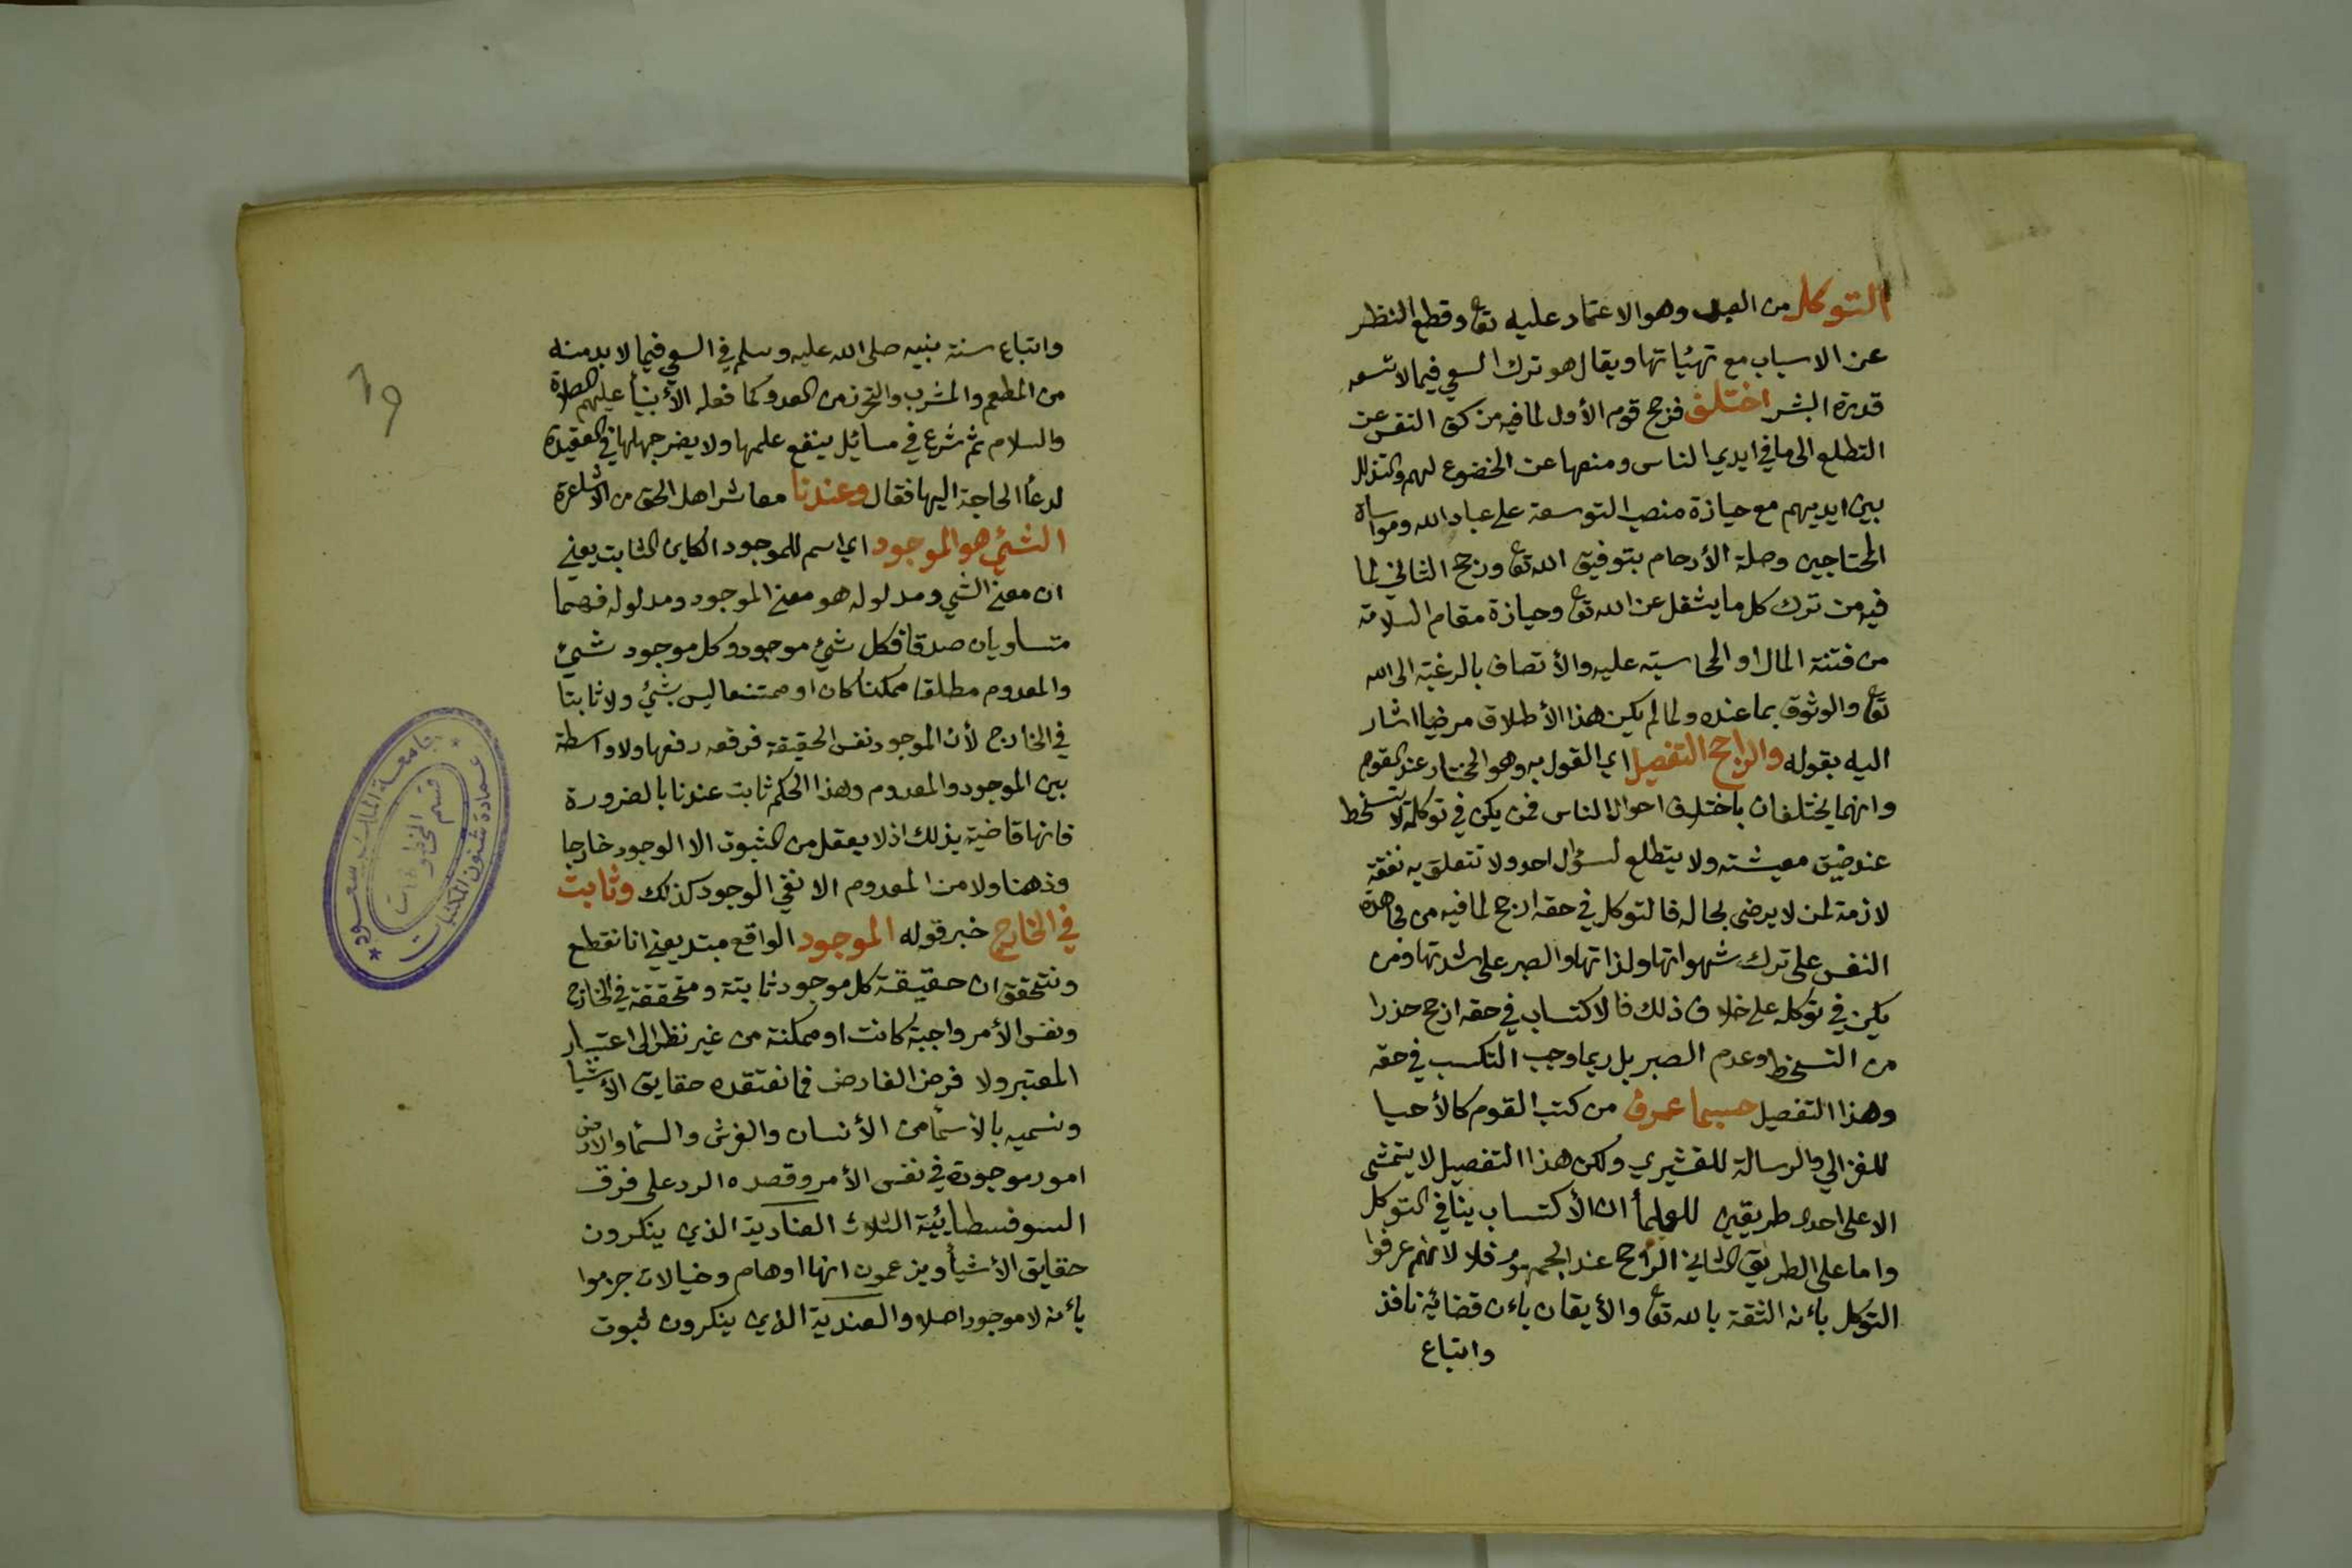 التوكل من العبد وهو الاعتماد عليه تع وقطع النظر
عن الاسباب مع تهيئاتها ويقال هو ترك السعي فيما لا تسعه
قدرة البشر اختلف فرجح قوم الأول لما فيه من كف النفس عن
التطلع الى ما في ايدي الناس ومنعها عن الخضوع لهم والتذلل
بين ايديهم مع حيازة منصب التوسعة على عباد الله ومواساة
المحتاجين وصلة الأرحام بتوفيق الله تع ورجح الثاني لما
فيه من ترك كل ما يشغل عن الله تع وحيازة مقام السلامة
من فتنة المال او المحاسبته عليه والأتصاف بالرغبة الى الله
تع والوثوق بما عنده ولما لم يكن هذا الأطلاق مرضيا اشار
اليه بقوله والراجح التفصيل اي القول به وهو المختار عند القوم
وانهما يختلفان باختلاف احوال الناس فمن يكن في توكله لا يتسخط
عند ضيق معيشته ولا يتطلع لسؤال احد ولا تتعلق به نفقة
لازمة لمن لا يرضى بحاله فالتوكل في حقه ارجح لما فيه من مجاهدة
النفس على ترك شهواتها ولذاتها والصبر على شدتها ومن
يكن في توكله على خلاف ذلك فالاكتساب في حقه ارجح حذرا
من التسخط وعدم الصبر بل ربما وجب التكسب في حقه
وهذا التفصيل حسبما عرف من كتب القوم كالأحيا
للغزالي والرسالة للقشيري ولكن هذا التفصيل لا يتمشى
الا على احد طريقين للعلمأ ان الأكتساب ينافي التوكل
واما على الطريق الثاني الراجح عند الجمهور فلا لانهم عرفوا
التوكل بأنه الثقة بالله تع والأيقان بأن قضائية نافذ
واتباع
واتباع سنة نبيه صلى الله عليه وسلم في السعي فيما لا بد منه
من المطعم والمشرب والتحرز من العدو كما فعله الأنبيأ عليهم الصلاة
والسلام ثم شرع في مسائل ينفع علمها ولا يضر جهلها في العقيدة
لدعأ الحاجة اليها فقال وعندنا معاشر اهل الحق من الاشاعرة
الشئ هو الموجود اي اسم للموجود الكاين الثابت يعني
ان معنى الشي ومدلوله هو معنى الموجود ومدلوله فهما
متساويان صدقا فكل شئ موجود وكل موجود شئ
والمعدوم مطلقا ممكنا كان او ممتنعا ليس بشئ ولا ثابتا
في الخارج لأن الموجود نفس الحقيقة فرفعه رفعها ولا واسطة
بين الموجود والمعدوم وهذا الحكم ثابت عندنا بالضرورة
فانها قاضية بذلك اذ لا يعقل من الثبوت الا الوجود خارجا
وذهنا ولا من المعدوم الا نفي الوجود كذلك وثابت
في الخارج خبر قوله الموجود الواقع مبتد يعني انا نقطع
ونتحقق ان حقيقة كل موجود ثابتة ومتحققة في الخارج
ونفس الأمر واجبة كانت او ممكنة من غير نظر الى اعتبار
المعتبر ولا فرض الفارض فما نعتقده حقايق الأشيا
ونسميه بالأسمأ من الأنسان والفرس والسما والارض
امور موجودة في نفس الأمر وقصده الرد على فرق
السوفسطايئية الثلاث العنادية الذي ينكرون
حقايق الأشيأ ويزعمون انها اوهام وخيالات جزموا
بأنه لا موجود اصلا والعندية الذي ينكرون ثبوت
١٩
جامعة الملك سعود
عمادة شئون المكتبات
قسم المخطوطات